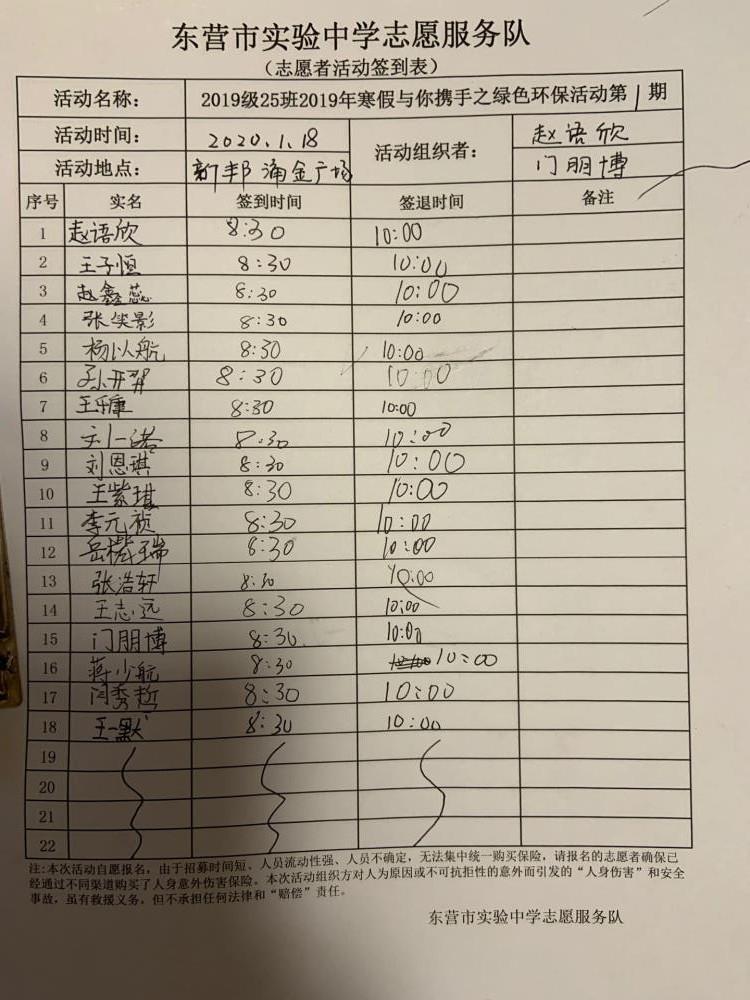 东营市实验中学志愿服务队
（志愿者活动签到表）
活动名称： 2019级25班2019年寒假与你携手之绿色环保活动第1期
活动时间： 2020.1.18 活动组织者： 赵语欣
活动地点： 新邦涌金广场 门朋博
序号 实名 签到时间 签退时间 备注
1 赵语欣 8:30 10:00
2 王子恒 8:30 10:00
3 赵鑫蕊 8:30 10:00
4 张笑影 8:30 10:00
5 杨以航 8:30 10:00
6 孙开羿 8:30 10:00
7 王乐康 8:30 10:00
8 刘一诺 8:30 10:00
9 刘恩琪 8:30 10:00
10 王紫琪 8:30 10:00
11 李元祯 8:30 10:00
12 岳 瑞 8:30 10:00
13 张浩轩 8:30 10:00
14 王志远 8:30 10:00
15 门朋博 8:30 10:00
16 蒋少航 8:30 10:00
17 闫秀哲 8:30 10:00
18 王一默 8:30 10:00
19
20
21
22
注:本次活动自愿报名，由于招募时间短、人员流动性强、人员不确定，无法集中统一购买保险，请报名的志愿者确保已
经通过不同渠道购买了人身意外伤害保险。本次活动组织方对人为原因或不可抗拒性的意外而引发的“人身伤害”和安全
事故，虽有救援义务，但不承担任何法律和“赔偿”责任。
东营市实验中学志愿服务队